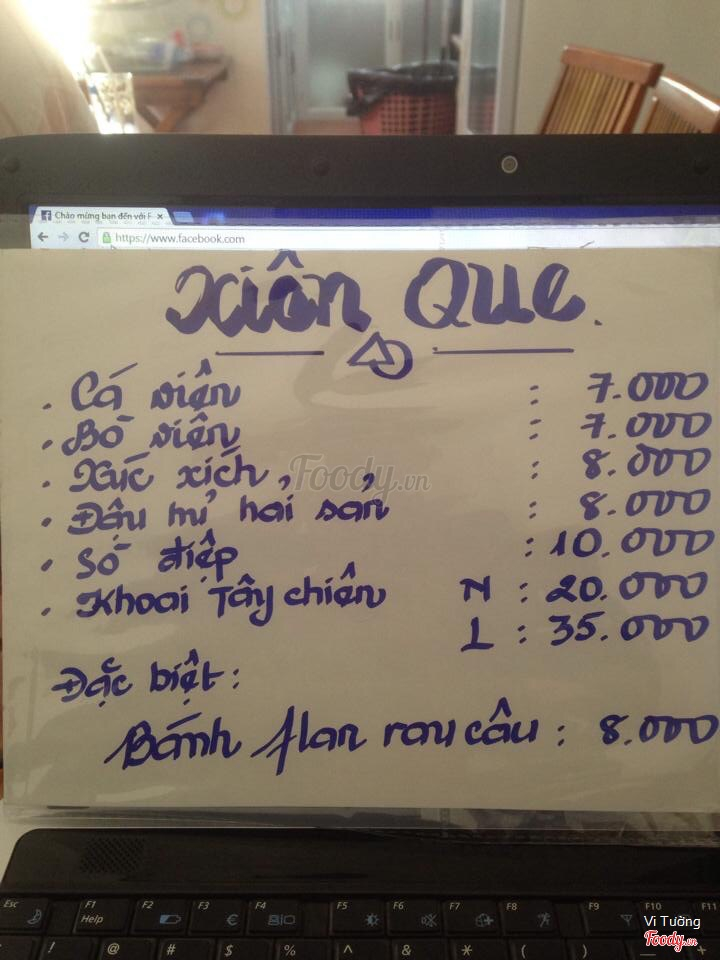 Chào mừng bạn đến với F
https://www.facebook.com
Xiên Que.
. Cá viên : 7.000
. Bò viên : 7.000
. Xúc xích : 8.000
Foody.vn
. Đậu hủ hải sản : 8.000
. Sò điệp : 10.000
. Khoai Tây chiên N : 20.000
L : 35.000
Đặc biệt :
Bánh flan rau câu : 8.000
Esc F1 F2 F3 F4 F5 F6 F7 F8 F9 F10 F11
Help
! @ # $ % ^ & * ( )
Vi Tường
Foody.vn